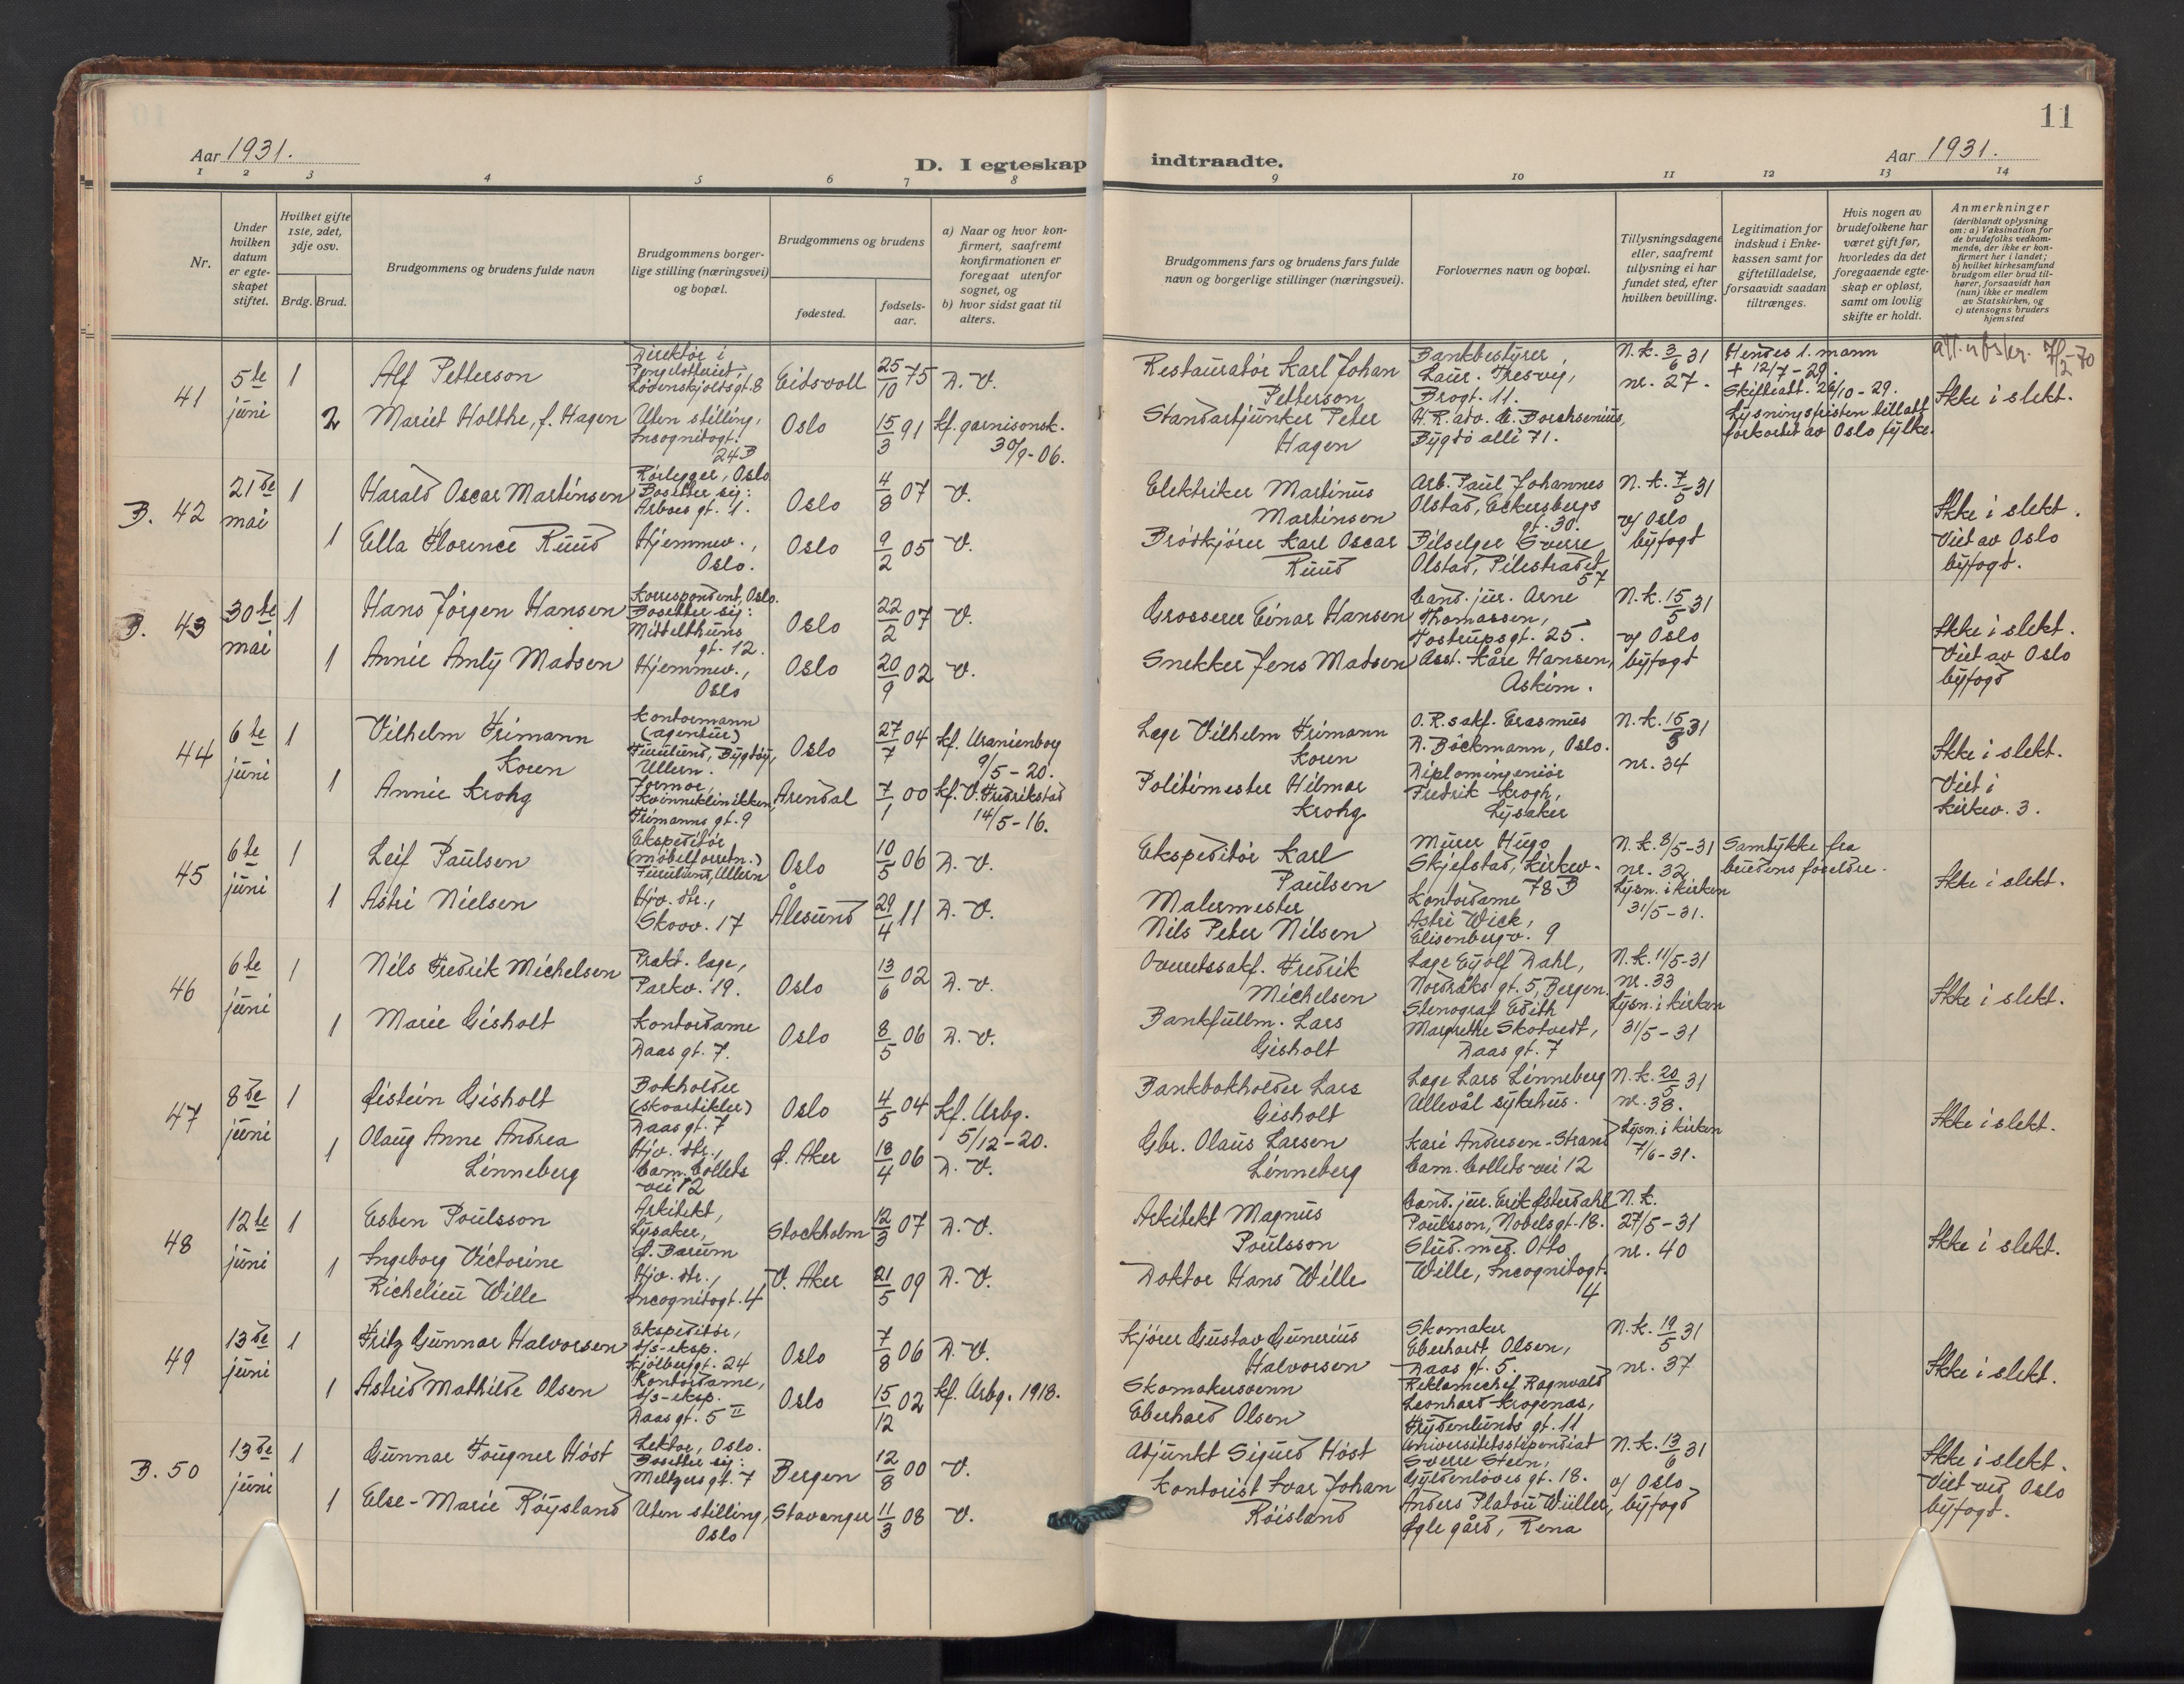 11
Aar 1931.
D. I egteskap indtraadte.
Aar 1931.
1 2 3 4 5 6 7 8 9 10 11 12 13 14
Nr.
Under hvilken datum er egteskapet stiftet.
Hvilket gifte 1ste, 2det, 3dje osv.
Brdg. Brud.
Brudgommens og brudens fulde navn
Brudgommens borgerlige stilling (næringsvei) og bopæl.
Brudgommens og brudens
fødested.
fødselsaar.
a) Naar og hvor konfirmert, saafremt konfirmationen er foregaat utenfor sognet, og
b) hvor sidst gaat til alters.
Brudgommens fars og brudens fars fulde navn og borgerlige stillinger (næringsvei).
Forlovernes navn og bopæl.
Tillysningsdagene eller, saafremt tillysning ei har fundet sted, efter hvilken bevilling.
Legitimation for indskud i Enkekassen samt for giftetilladelse, forsaavidt saadan tiltrænges.
Hvis nogen av brudefolkene har været gift før, hvorledes da det foregaaende egteskap er opløst, samt om lovlig skifte er holdt.
Anmerkninger
(deriblandt oplysning om: a) Vaksination for de brudefolks vedkommende, der ikke er konfirmert her i landet;
b) hvilket kirkesamfund brudgom eller brud tilhører, forsaavidt han (hun) ikke er medlem av Statskirken, og
c) utensogns bruders hjemsted
41
5te juni
1
Alf Petterson
Direktør i Pengelotteriet Løvenskjoldsgt. 8
Eidsvoll
25/10 75
D. V.
Restauratør Karl Johan Petterson
Bankbestyrer Laur. Thesvig, Brogt. 11.
N.k. 3/6 31
nr. 27.
Hendes 1. mann + 12/7-29.
Skifteatt. 26/10-29.
Lysningsfristen tillatt forkortet av Oslo fylke.
att. utskr. 7/5-70
Ikke i slekt.
2
Mariet Holthe, f. Hagen
Uten stilling, Incognitogt. 24B
Oslo
15/3 91
kf. garnisonsk. 30/9-06.
Standartjunker Peter Hagen
H.R.adv. C. Borchsenius, Bygdø allé 71.
B. 42
21de mai
1
Harald Oscar Martinsen
Rørlegger, Oslo Bosetter sig: Arboes gt. 1.
Oslo
4/8 07
V.
Elektriker Martinus Martinsen
Arb. Paul Johannes Olstad, Eckersbergs gt. 30.
N.k. 7/5-31
v/ Oslo byfogd
Ikke i slekt.
Viet av Oslo byfogd.
1
Ella Florence Ruud
Hjemmev., Oslo.
Oslo
9/2 05
V.
Brødkjører Karl Oscar Ruud
Bilselger Sverre Olstad, Pilestredet 57
B. 43
30te mai
1
Hans Jörgen Hansen
Korrespondent, Oslo. Bosetter sig: Middelthuns gt. 12.
Oslo
22/2 07
V.
Grosserer Einar Hansen
Cand. jur. Arne Thomassen, Tostrupsgt. 25.
N.k. 15/5 31
v/ Oslo byfogd
Ikke i slekt.
Viet av Oslo byfogd
1
Annie Amly Madsen
Hjemmev., Oslo
Oslo
20/9 02
V.
Snekker Jens Madsen
Asst. Kåre Hansen, Askim.
44
6te juni
1
Vilhelm Frimann Koren
Kontormann (agentur) Furulund, Bygdøy, Ullern.
Oslo
27/7 04
kf. Uranienborg 9/5-20.
Læge Vilhelm Frimann Koren
O.R.sakf. Erasmus D. Böckmann, Oslo.
N.k. 15/5 31
nr. 34
Ikke i slekt.
Viet i kirkev. 3.
1
Annie Krohg
Jormor, Kvinneklinikken, Frimanns gt. 9
Arendal
7/1 00
kf. V. Fredrikstad 14/5-16.
Politimester Hilmar Krohg
Diplomingeniör Fredrik Krogh, Lysaker
45
6te juni
1
Leif Paulsen
Ekspeditør (møbelforretn.) Furulund, Ullern
Oslo
10/5 06
D. V.
Ekspeditör Karl Paulsen
Murer Hugo Skjefstad, Kirkev. 78B
N.k. 8/5-31
nr. 32
Lysn. i kirken 31/5-31.
Samtykke fra brudens foreldre.
Ikke i slekt.
1
Astri Nielsen
Hjv. dtr., Skovv. 17
Ålesund
29/4 11
D. V.
Malermester Nils Peter Nilsen
Kontordame Astri Wick, Elisenbergv. 9
46
6te juni
1
Nils Fredrik Michelsen
Prakt. læge, Parkv. 19.
Oslo
13/6 02
D. V.
Overrettssakf. Fredrik Michelsen
Læge Eyolf Dahl, Nordraks gt. 5, Bergen.
N.k. 11/5-31
nr. 33
Lysn. i kirken 31/5-31
Ikke i slekt.
1
Marie Gisholt
Kontordame Daas gt. 7.
Oslo
8/5 06
D. V.
Bankfullm. Lars Gisholt
Stenograf Edith Margrethe Skotvedt, Daas gt. 7
47
8de juni
1
Øistein Gisholt
Bokholder (skoartikler) Daas gt. 7
Oslo
4/5 04
kf. Urbg. 5/12-20.
Bankbokholder Lars Gisholt
Læge Lars Linneberg Ullevål sykehus.
N.k. 20/5 31
nr. 38.
Lysn. i kirken 7/6-31.
Ikke i slekt.
1
Olaug Anne Andrea Linneberg
Hjv. dtr., Cam. Colletts vei 12
Ø. Aker
18/4 06
D. V.
Gbr. Olaus Larsen Linneberg
Kari Andersen-Strand Cam. Colletts vei 12
48
12te juni
1
Esben Poulsson
Arkitekt, Lysaker, Ø. Bærum
Stockholm
12/3 07
D. V.
Arkitekt Magnus Poulsson
Cand. jur. Erik Østerdahl Poulsson, Nobelsgt. 18.
N.k. 27/5-31
nr. 40
Ikke i slekt.
1
Ingeborg Victorine Richelieu Wille
Hjv. dtr., Incognitogt. 4
V. Aker
21/5 09
D. V.
Doktor Hans Wille
Stud. med. Otto Wille, Incognitogt. 4
49
13de juni
1
Fritz Gunnar Halvorsen
Ekspeditör, d/s-eksp. Kjölberggt. 24
Oslo
7/8 06
D. V.
Kjörer Gustav Gunerius Halvorsen
Skomaker Eberhardt Olsen, Daas gt. 5.
N.k. 19/5 31
nr. 37
Ikke i slekt.
1
Astrid Mathilde Olsen
Kontordame, d/s-eksp. Daas gt. 5 II
Oslo
15/12 02
kf. Urbg. 1918.
Skomakersvenn Eberhard Olsen
Reklamechef Ragnvald Leonhard Krogenæs, Frydenlunds gt. 11
B. 50
13de juni
1
Gunnar Fougner Høst
Lektor, Oslo. Bosetter sig: Meltzers gt. 7
Bergen
12/8 00
V.
Adjunkt Sigurd Høst
Universitetsstipendiat Sverre Steen, Gyldenløves gt. 18.
N.k. 13/6 31
v/ Oslo byfogd
Ikke i slekt.
Viet ved Oslo byfogd.
1
Else-Marie Röysland
Uten stilling, Oslo
Stavanger
11/3 08
V.
Kontorist Ivar Johan Röisland
Anders Platou Wüller, Øgle gård, Rena